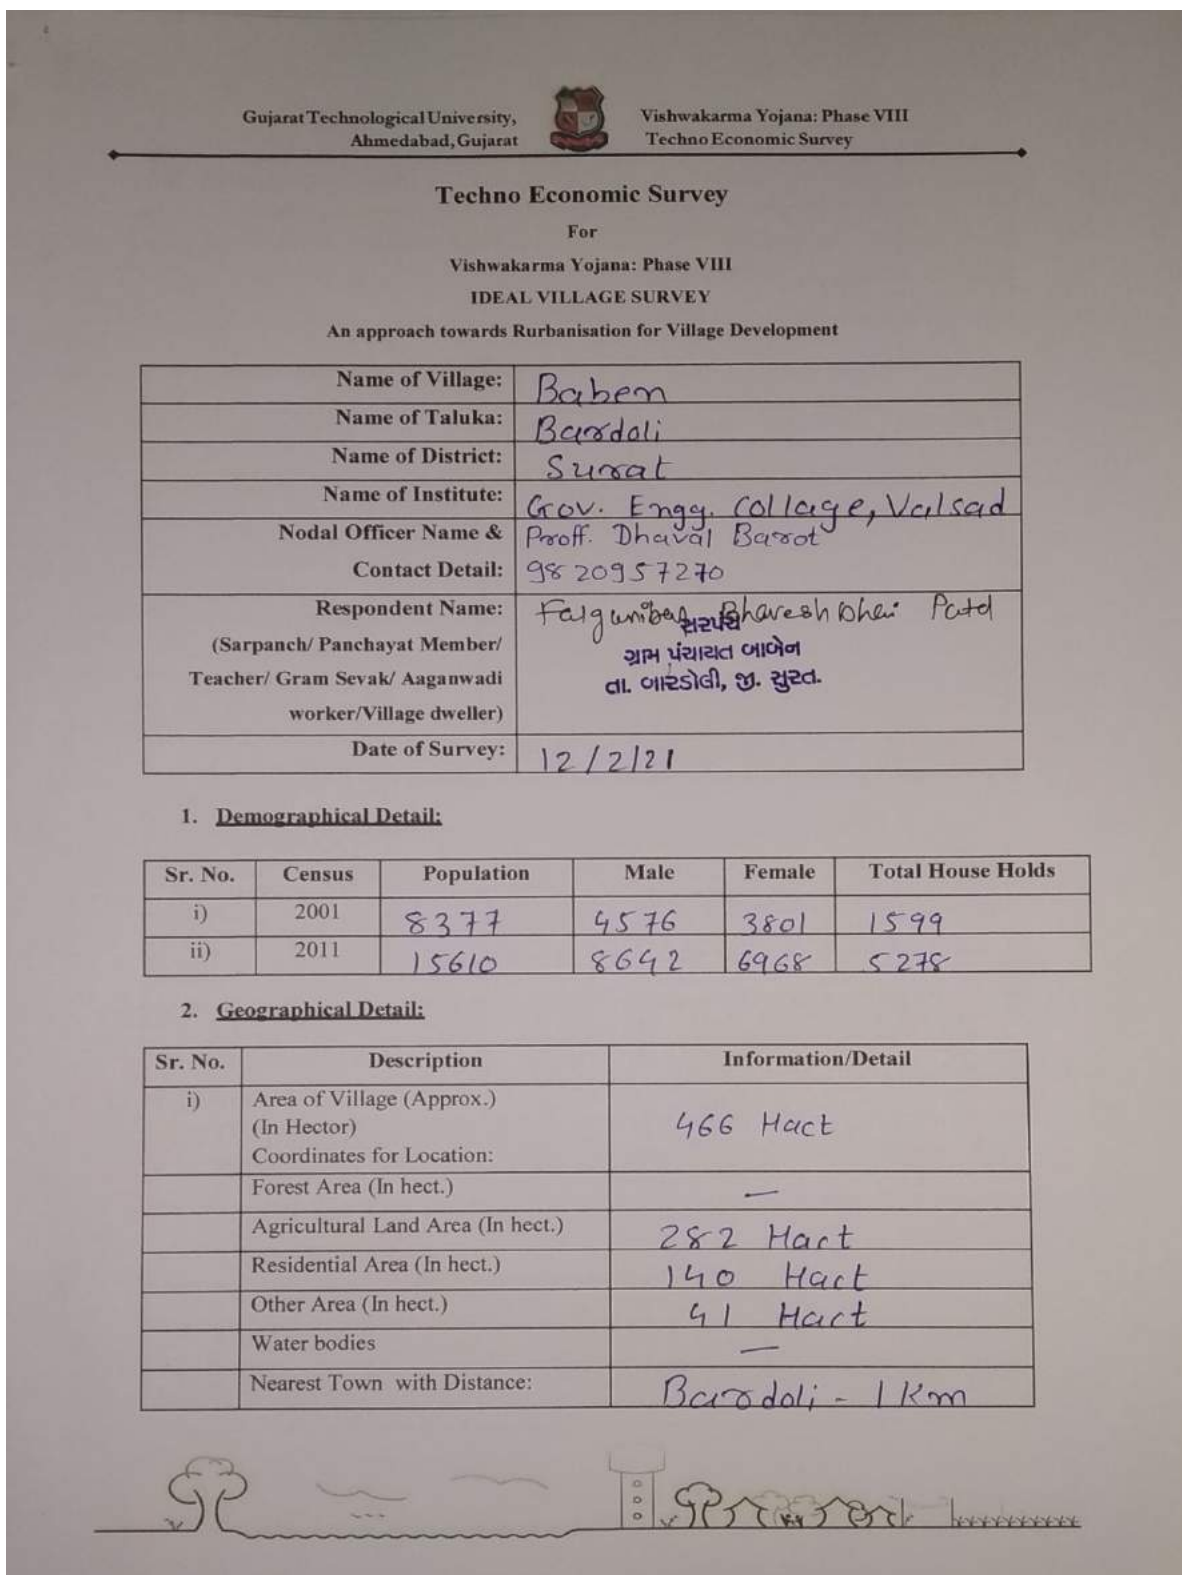 Gujarat Technological University, Vishwakarma Yojana: Phase VIII
Ahmedabad, Gujarat Techno Economic Survey
Techno Economic Survey
For
Vishwakarma Yojana: Phase VIII
IDEAL VILLAGE SURVEY
An approach towards Rurbanisation for Village Development
Name of Village: Baben
Name of Taluka: Bardoli
Name of District: Surat
Name of Institute: Gov. Engg. Collage, Valsad
Nodal Officer Name & Proff. Dhaval Barot
Contact Detail: 9820957270
Respondent Name: Falguniben Bhaveshbhai Patel
સરપંચ
(Sarpanch/ Panchayat Member/ ગ્રામ પંચાયત બાબેન
Teacher/ Gram Sevak/ Aaganwadi તા. બારડોલી, જી. સુરત.
worker/Village dweller)
Date of Survey: 12/2/21
1. Demographical Detail:
Sr. No. Census Population Male Female Total House Holds
i) 2001 8377 4576 3801 1599
ii) 2011 15610 8642 6968 5278
2. Geographical Detail:
Sr. No. Description Information/Detail
i) Area of Village (Approx.)
(In Hector) 466 Hact
Coordinates for Location:
Forest Area (In hect.) —
Agricultural Land Area (In hect.) 282 Hact
Residential Area (In hect.) 140 Hact
Other Area (In hect.) 41 Hact
Water bodies —
Nearest Town with Distance: Bardoli - 1 Km